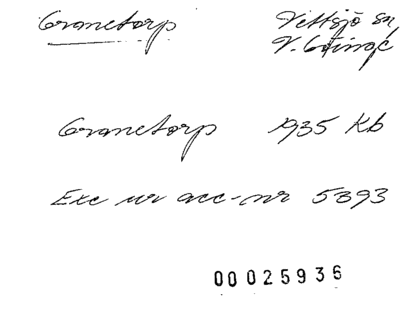 Granetorp Vittsjö sn,
V. Göinge
Granetorp 1935 Kb
Exc ur acc-nr 5393
00025936